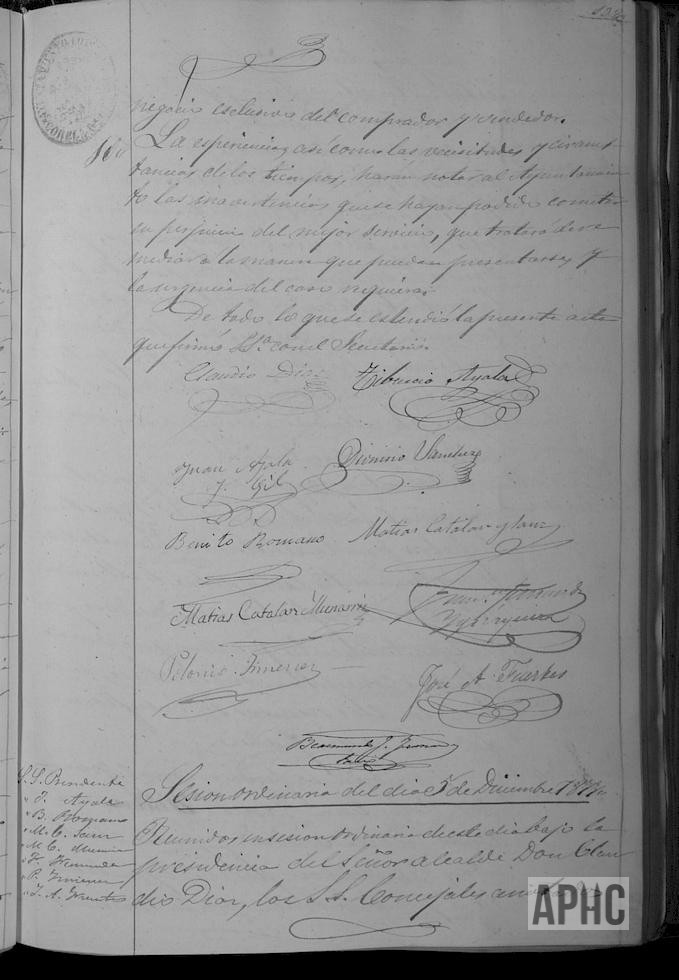 negocio esclusivo del comprador y vendedor.
La esperiencia, asi como las vicisitudes y circuns-
tancias de los tiempos, haran notar al Ayuntamien-
to las inadvertencias que se hayan podido cometer
en perjuicio del mejor servicio, que tratará de re-
mediar a la manera que puedan presentarse, y
la urgencia del caso requiera.
De todo lo que se estendió la presente acta
que firmó S.Sª con el Secretario.
Claudio Diaz
Tiburcio Ayala
Juan Ayala
y Gil
Dionisio
Benito Romano
Matias Catalan y Sanz
Matias Catalan Munarriz
Polonio Jimenez
José A. Fuertes
S.S. Presidente
" T. Ayala
" B. Romano
" M. C. Sanz
" M. C. Munarriz
" P. Jimenez
" J. A. Fuertes
Sesion ordinaria del dia 5 de Diciembre
Reunidos en sesion ordinaria de este dia bajo la
presidencia del Señor alcalde Don Clau-
dio Diaz, los S.S. Concejales
APHC